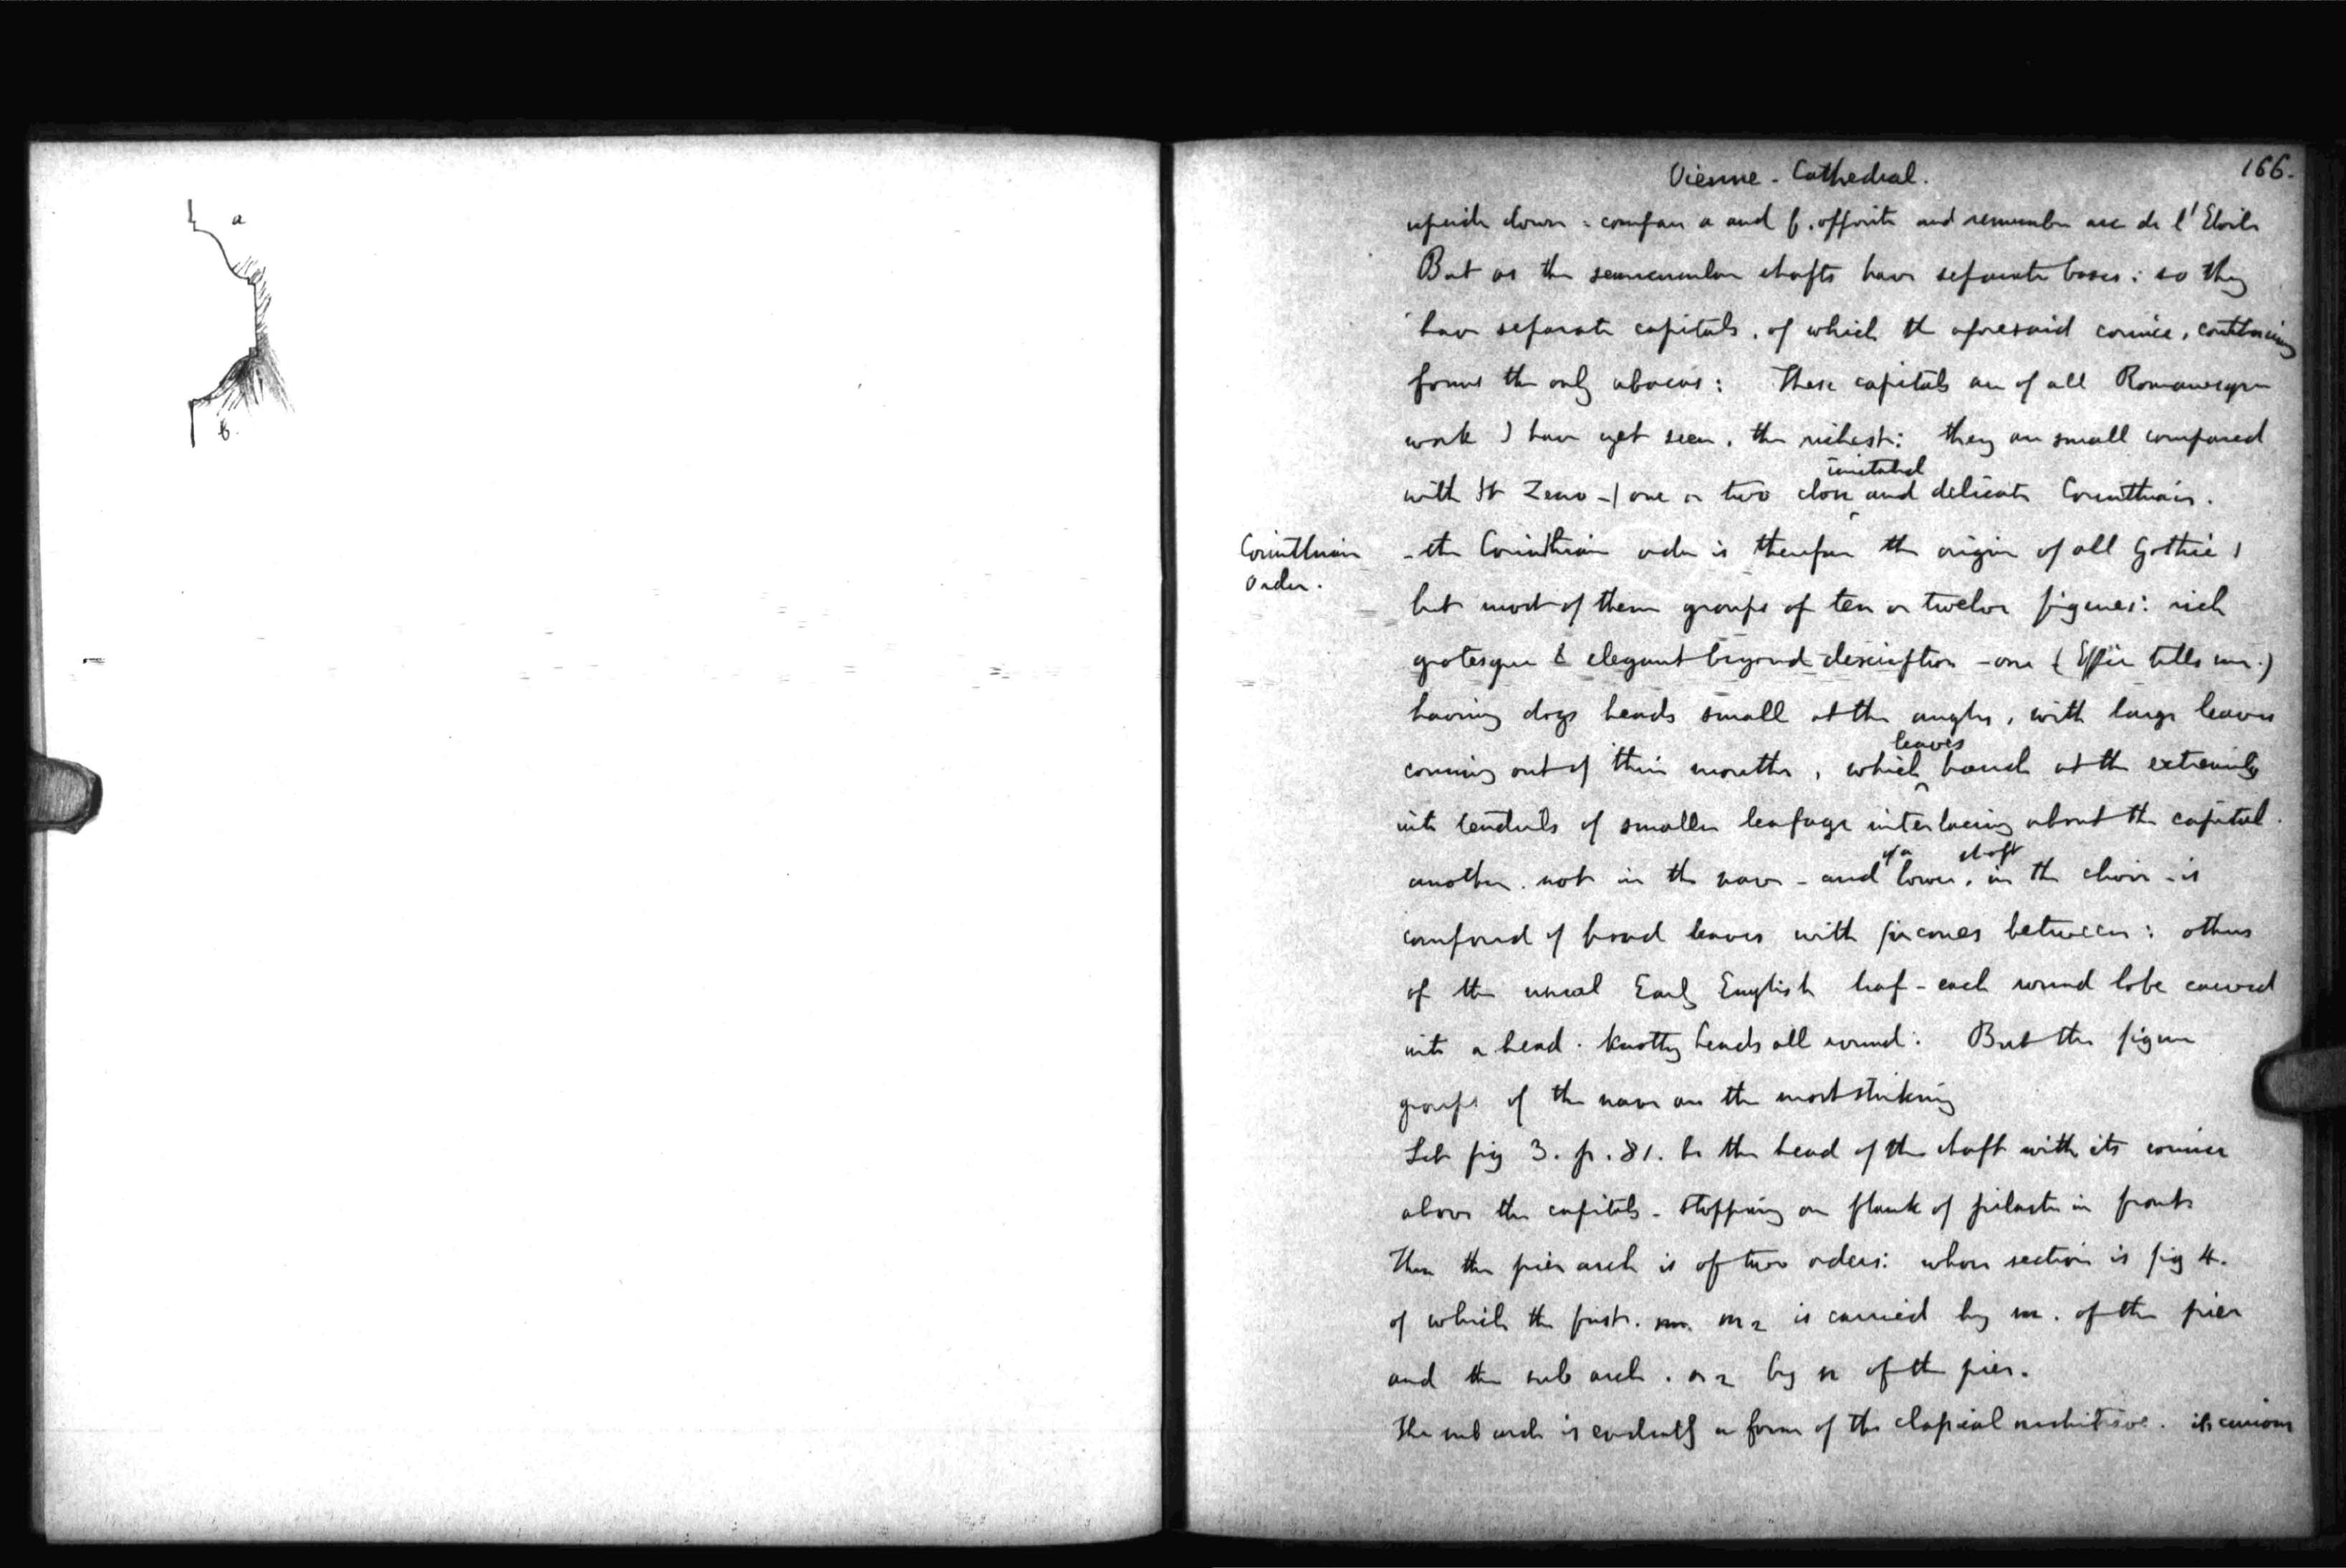 a
b.
Vienne - Cathedral.
166.
upside down : compare a and b. opposite and remember arc de l'Etoile
But as the semicircular shafts have separate bases : so they
have separate capitals, of which the aforesaid cornice, continuing
forms the only abacus : These capitals are of all Romanesque
work I have yet seen, the richest : they are small compared
with St Zeno - (one or two close and delicate Corinthian.
imitated
Corinthian
Order.
- the Corinthian order is therefore the origin of all Gothic)
but most of them groups of ten or twelve figures : rich
grotesque & elegant beyond description - one (Effie tells me.)
having dogs heads small at the angles, with large leaves
leaves
coming out of their mouths, which branch at the extremity
into tendrils of smaller leafage interlacing about the capital.
of a shaft
another. not in the nave - and lower, in the choir - is
composed of broad leaves with fir cones between : others
of the usual Early English leaf - each round lobe carved
into a head. knotty heads all round : But the figure
groups of the nave are the most striking
Let fig 3. p. 81. be the head of the shaft with its cornice
above the capitals - stopping on flank of pilaster in front
Then the pier arch is of two orders : whose section is fig 4.
of which the first. m 2 is carried by m. of the pier
and the sub arch. n 2 by n of the pier.
The sub arch is evidently a form of the classical architrave. its curious